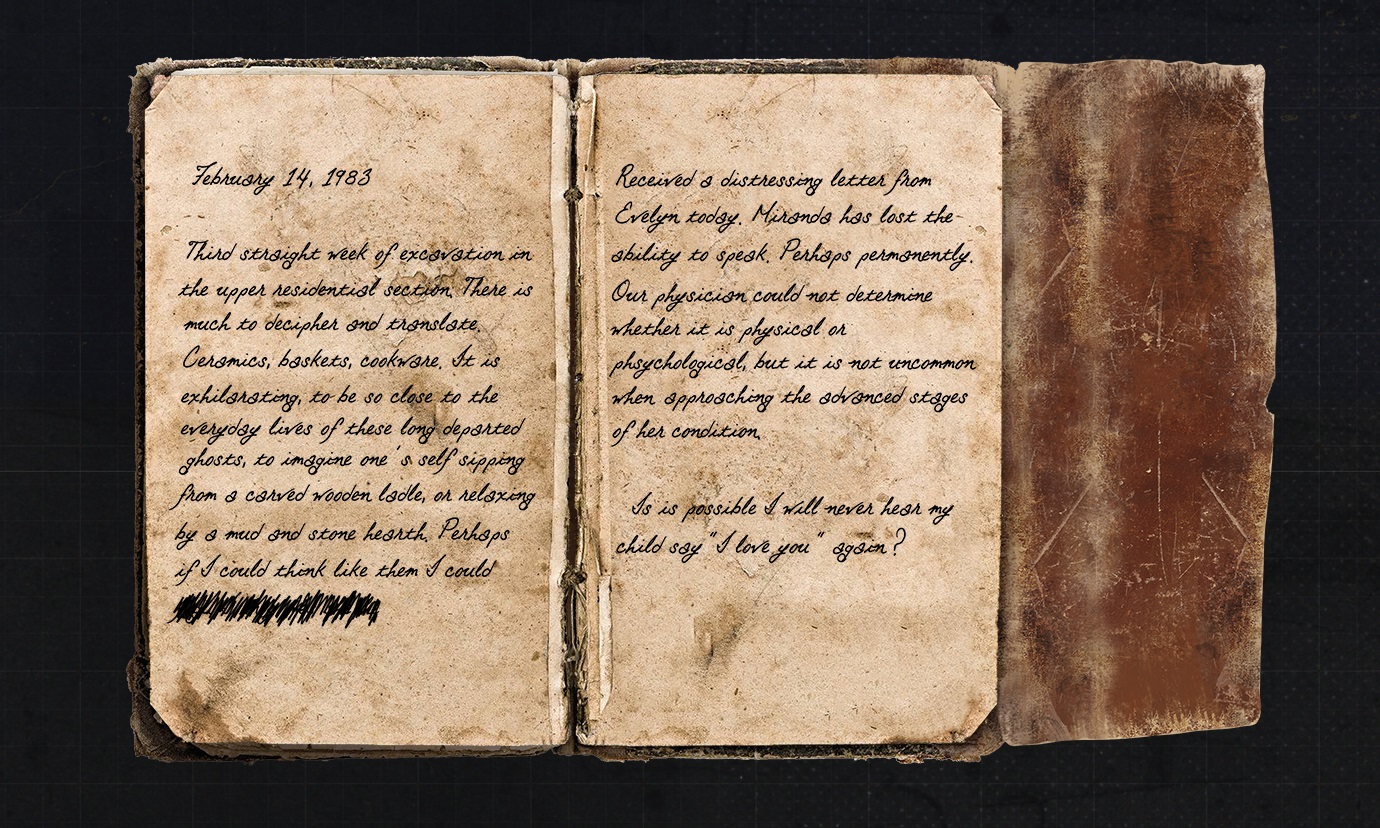 February 14, 1983
Third straight week of excavation in
the upper residential section. There is
much to decipher and translate.
Ceramics, baskets, cookware. It is
exhilarating, to be so close to the
everyday lives of these long departed
ghosts, to imagine one's self sipping
from a carved wooden ladle, or relaxing
by a mud and stone hearth. Perhaps
if I could think like them I could
Received a distressing letter from
Evelyn today. Miranda has lost the
ability to speak. Perhaps permanently.
Our physician could not determine
whether it is physical or
phsychological, but it is not uncommon
when approaching the advanced stages
of her condition.
Is is possible I will never hear my
child say "I love you" again?